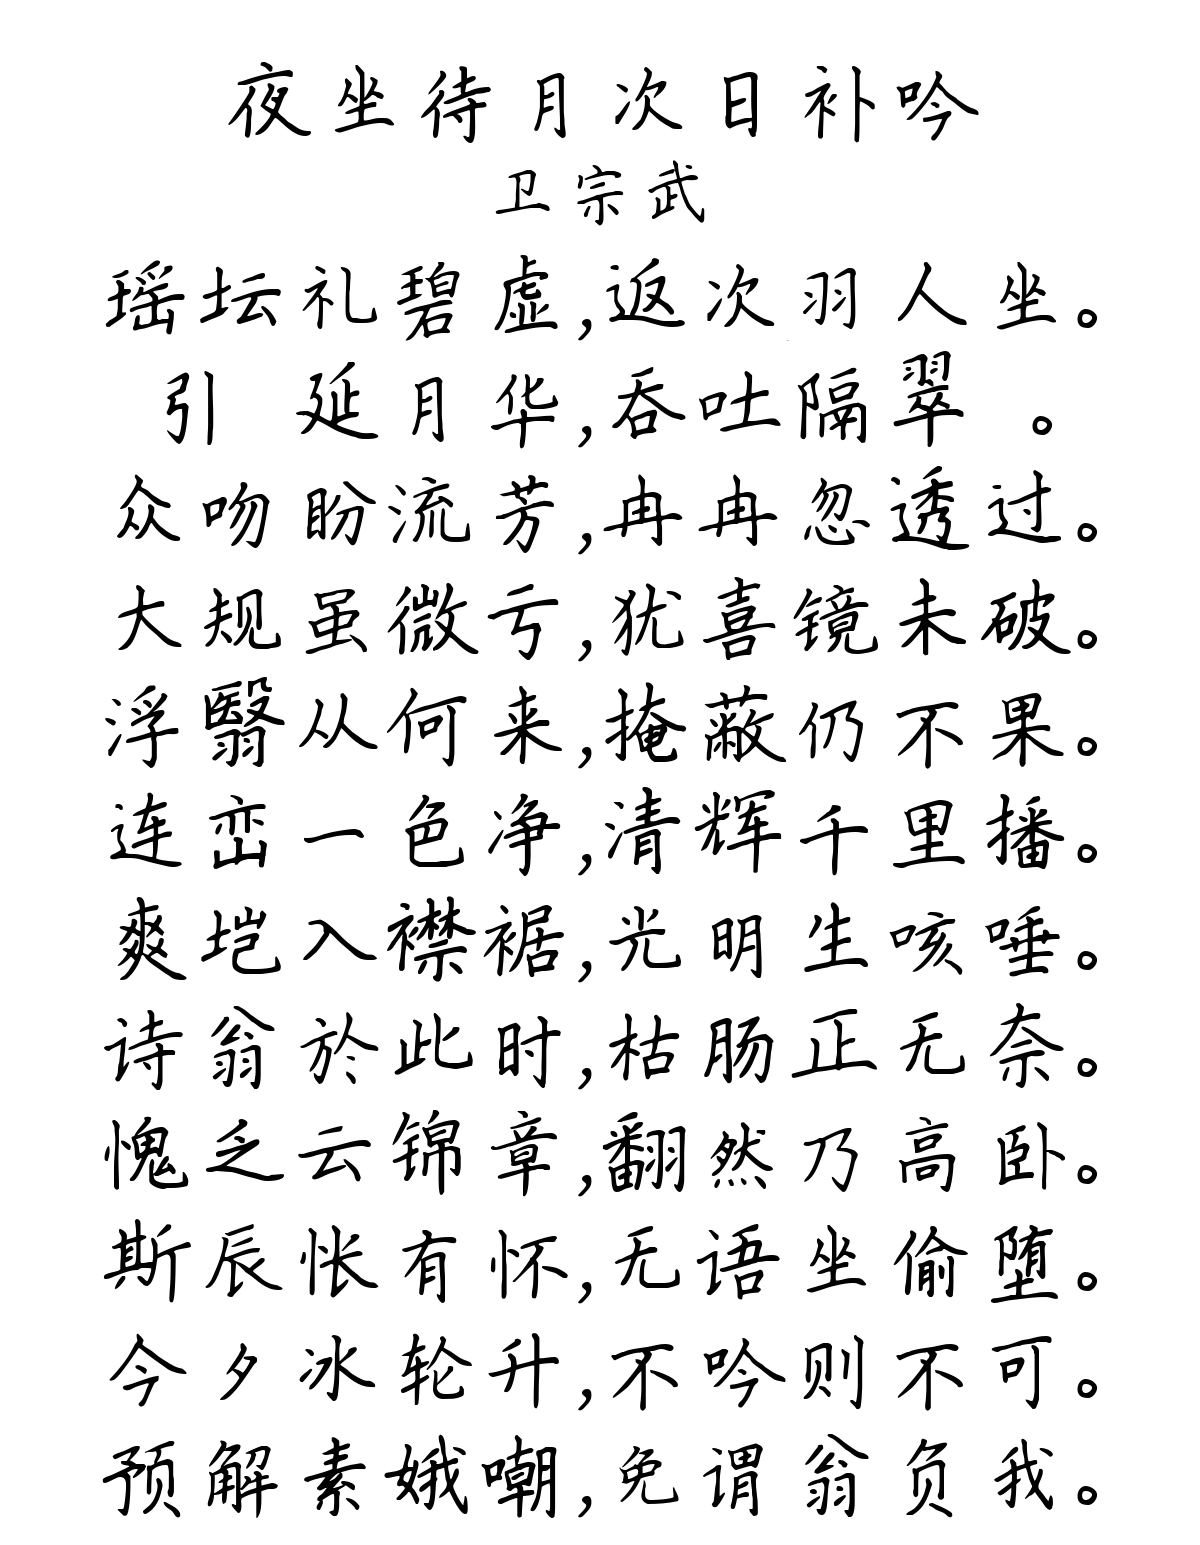 夜坐待月次日补吟
卫宗武
瑶坛礼碧虚,返次羽人坐。
引 延月华,吞吐隔翠 。
众吻盼流芳,冉冉忽透过。
大规虽微亏,犹喜镜未破。
浮翳从何来,掩蔽仍不果。
连峦一色净,清辉千里播。
爽垲入襟裾,光明生咳唾。
诗翁於此时,枯肠正无奈。
愧乏云锦章,翻然乃高卧。
斯辰怅有怀,无语坐偷堕。
今夕冰轮升,不吟则不可。
预解素娥嘲,免谓翁负我。